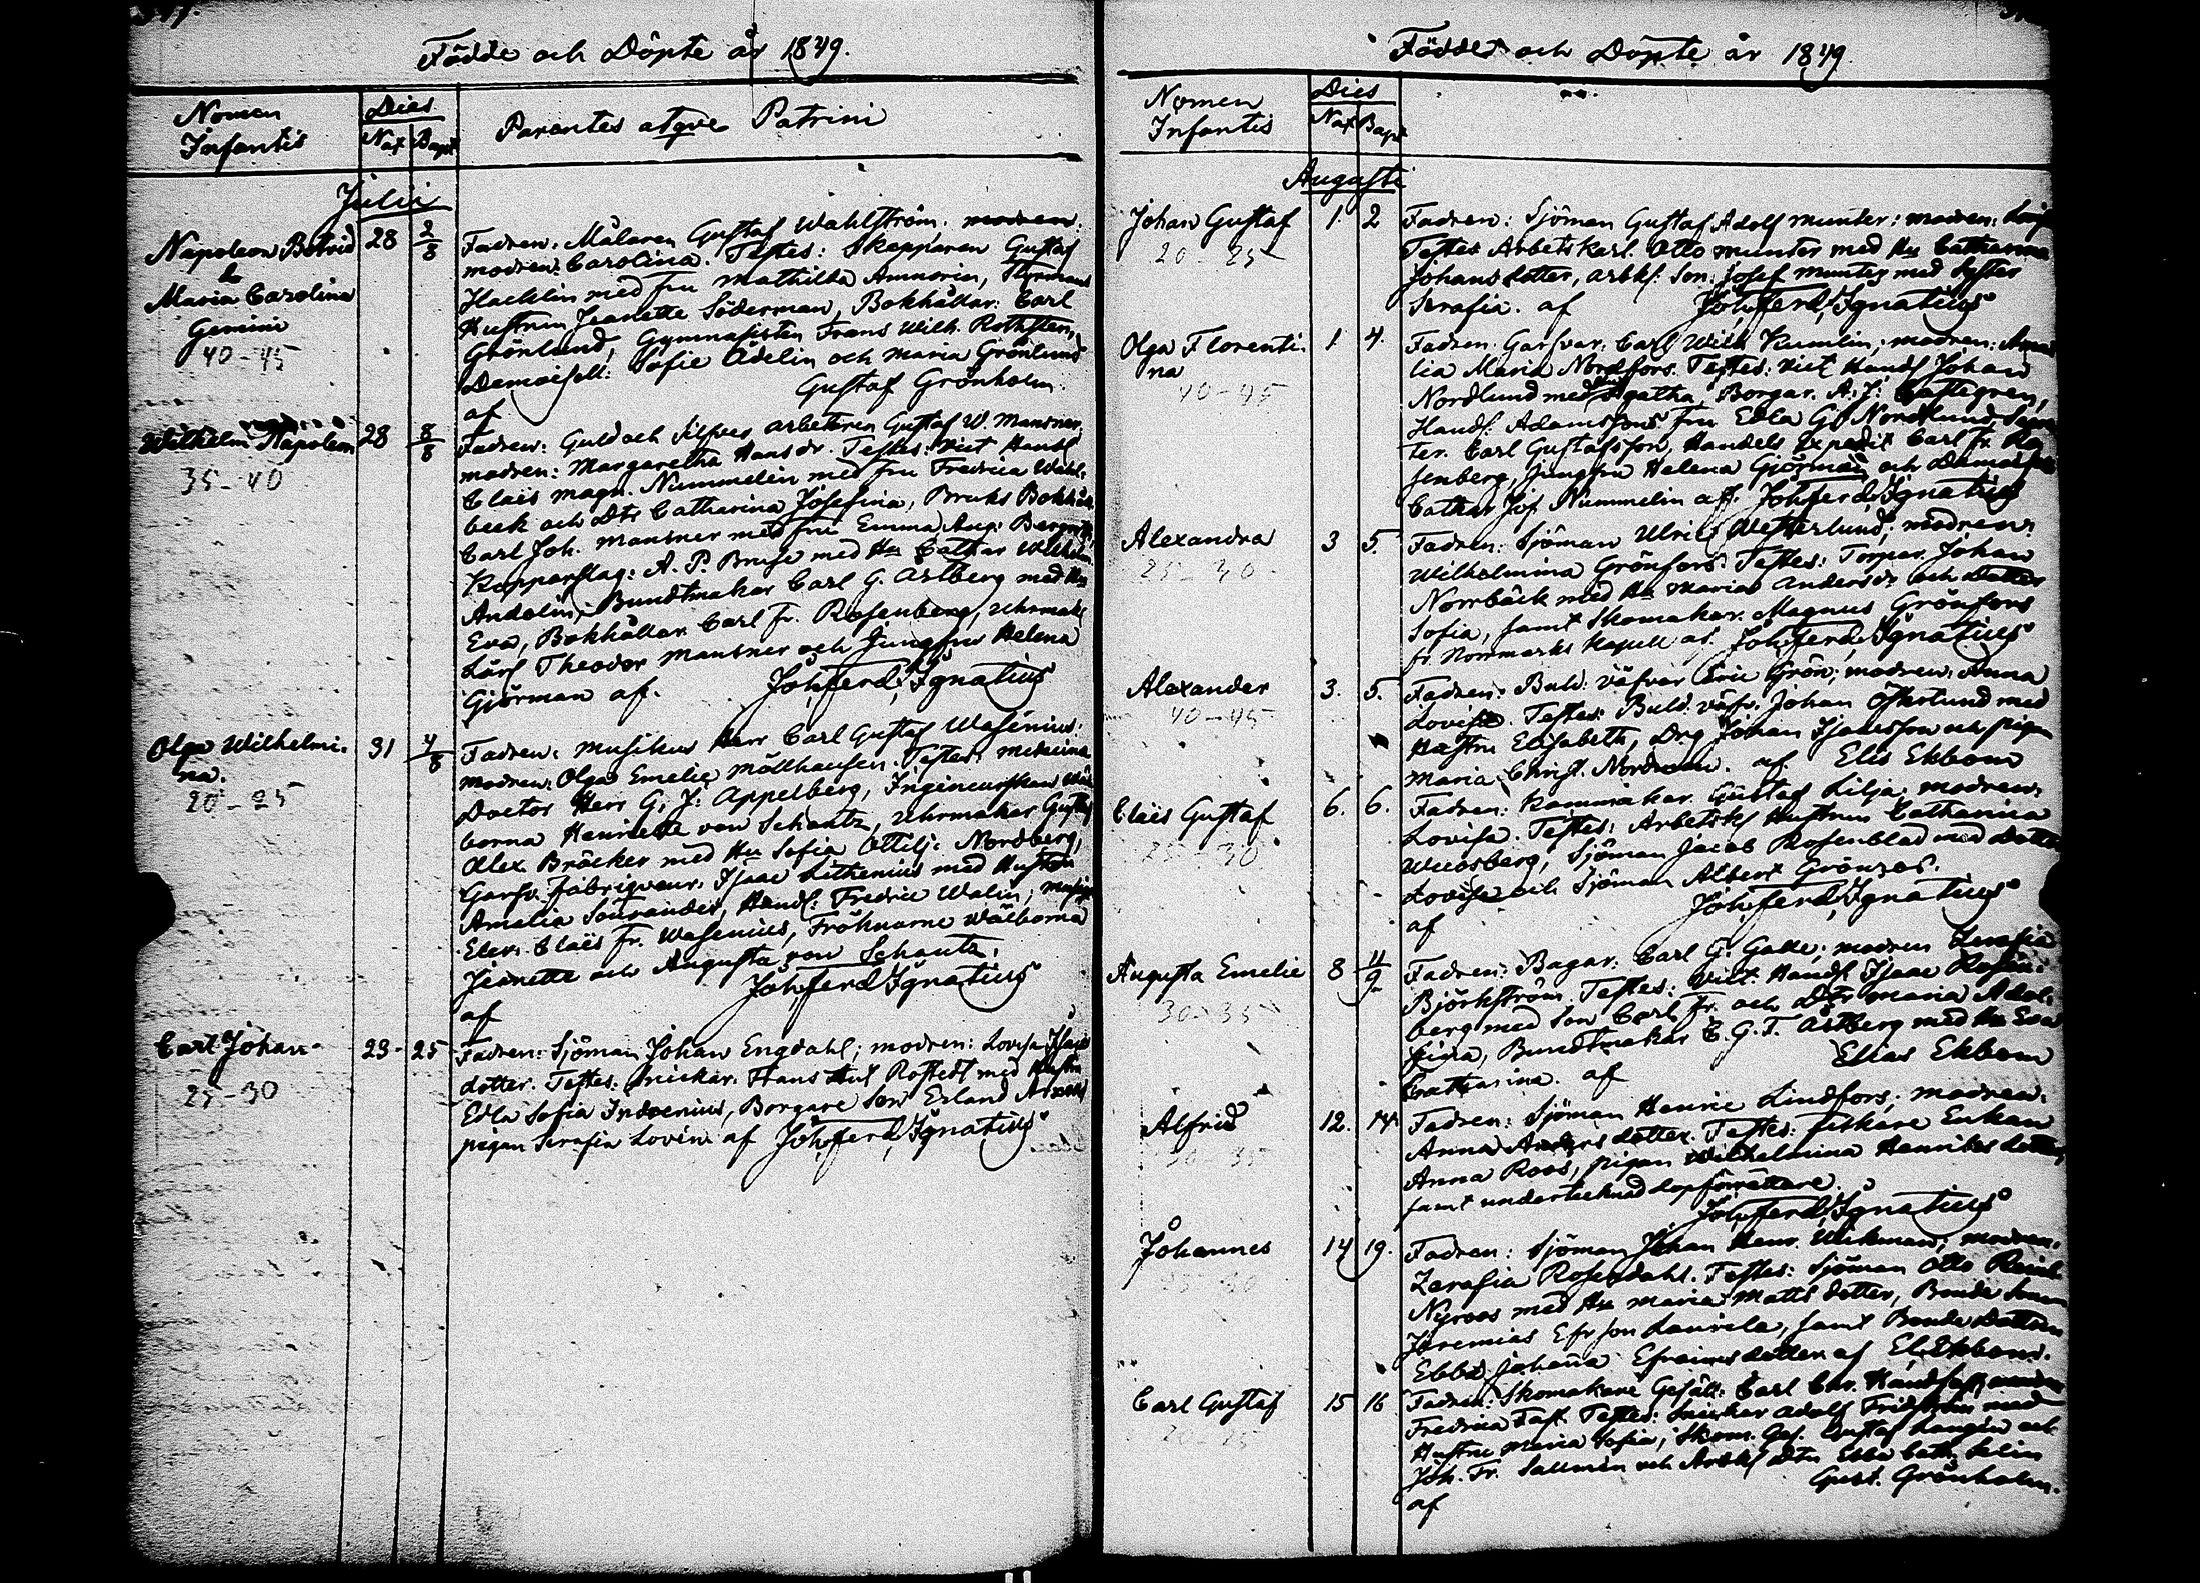 Födde och Döpte år 1849.
Nomen Infantis
Dies
Nat
Bapt
Parentes atqve Patrini
Julii
Napoleon Botvid
&
Maria Carolina
Gemini
40-45
28
2/8
Fadren: Målaren Gustaf Wahlström; modren:
modren: Carolina. Testes: Skepparen Gustaf
Hacklin med fru Mathilda Amnorin, Styrmans
Hustrun Jeanette Söderman, Bokhållar: Carl
Grönlund, Gymnasisten Frans Wilh. Rothsten,
Demoisell: Sofie Ådelin och Maria Grönlund
af Gustaf Grönholm
Wilhelm Napoleon
35-40
28
8/8
Fadren: Guld och Silfver arbetaren Gustaf W. Mansner,
modren: Margaretha Hansdr. Testes: Vict Handl
Claës Magn. Nummelin med fru Fredrica Wahl-
beck och Dtr Catharina Josefina, Bruks Bokhåll
Carl Joh. Mansner med fru Emma Aug:
Kopparslag: A. P. Bruse med Hu Cathar Wilhelm
Andelin, Bundtmakar Carl G. Åstberg med Hu
Eva, Bokhållar Carl Fr. Rosenberg, Uhrmak
Lärl Theodor Mansner och Jungfru Helena
Gjörman af. Joh. Ferd. Ignatius
Olga Wilhelmi-
na.
20-25
31
4/8
Fadren: Musikus Herr Carl Gustaf Wasenius:
modren: Olga Emelie Möllhausen. Testes: Medicina
Doctor Herr G. J. Appelberg, Ingenieurskan Wäl-
borna Henriette von Schantz, Uhrmakar Gustaf
Alex Bräcker med Hu Sofia Ottilj: Nordberg,
Garfv. Fabriqveur Isaac Lithenius med Hustru
Amalia Sourander, Handl: Fredric Walin, Musik
Elev. Claës Fr. Wasenius, Fröknarne Wälborna
Jeanette och Augusta von Schantz.
af Joh. Ferd. Ignatius
Carl Johan
25-30
23
25
Fadren: Sjöman Johan Engdahl; modren: Lovisa Isacs
dotter. Testes: Snickar. Hans Rostedt med Hustru
Edla Sofia Indrenius, Borgare Son Erland
pigan Serafia Lovén af Joh. Ferd. Ignatius
Födde och Döpte år 1849.
Nomen Infantis
Dies
Nat
Bapt
Augusti
Johan Gustaf
20-25
1.
2
Fadren: Sjöman Gustaf Adolf Munter; modren: Lovisa
Testes Arbetskarl. Otto Munter med Hu Catharina
Johansdotter, arbkl. Son: Josef Munter med Syster
Serafia. af Joh. Ferd. Ignatius
Olga Florenti-
na
40-45
1.
4.
Fadren: Garfvar. Carl Wilh Kumlin; modren: Ama
lia Maria Nordfors. Testes: Vict Handl Johan
Nordlund med Agatha, Borgar. A. J. Castegren,
Handl: Adamssons Fru Edla G. Nordlund,
ter. Carl Gustafsson, Handels Expedit Carl Fr. Ro
senberg, Jungfru Helena Gjörman och Demoisell
Cathar Jos. Nummelin af. Joh. Ferd. Ignatius
Alexandra
25-30
3
5.
Fadren: Sjöman Ulric Westerlund; modren:
Wilhelmina Grönfors. Testes: Torpar. Johan
Norrbäck med Hu Maria Andersdr och Dotter
Sofia, samt Skomakar. Magnus Grönfors
fr. Norrmarks Kapell af. Joh. Ferd. Ignatius
Alexander
40-45
3.
5.
Fadren: Buld. väfvar Eric Grön; modren: Anna
Lovisa. Testes: Buld. väfv. Johan Österlund med
Hustru Elisabeth, Drg Johan Isaksson och pigan
Maria Christ. Nordman. af Elis Ekbom
Claës Gustaf
25-30
6.
6.
Fadren: Kammakar. Gustaf Lilja; modren:
Lovisa. Testes: Arbetskl Hustrun Catharina
Sjöman Jacob Rosenblad med Dotter
Lovisa och Sjöman Albert Grönroos.
af Joh. Ferd. Ignatius
Augusta Emelie
30-35
8
11/9
Fadren: Bagar. Carl G. Galle; modren Serafia
Björkström. Testes: Vict. Handl Isaac Rosen-
berg med Son Carl Fr. och Dtr Maria Adol-
figa, Bundtmakar C. G. T. Åstberg med Hu Eva
Catharina. af Elias Ekbom
Alfrid
30-35
12.
14.
Fadren: Sjöman Henric Lindfors; modren:
Anna Andersdotter. Testes: Fiskare Enkan
Anna Roos, pigan Wilhelmina Henriksdotter,
samt undertecknad dopförrättare.
Joh. Ferd. Ignatius
Johannes
14
19.
Fadren: Sjöman Johan Henr. Wickman; modren:
Serafia Rosendahl. Testes: Sjöman Otto Reinh
Nyroos med Hu Maria Mattsdotter, Bonde Sonen
Jeremias Efr son Laurila, samt Bonde Dottren
Ebba Johanna Efraimsdotter af El. Ekbom.
Carl Gustaf
20-25
15
16
Fadren: Skomakare Gesäll: Carl modren
Fredrica Fast. Testes: Snickar Adolf Fridström med
Hustru Maria Sofia, Skom. Ges. Gustaf Langén och
Joh. Fr. Sallmén och Arbkl dtr Ebba Cath. Selin
af Gust. Grönholm.